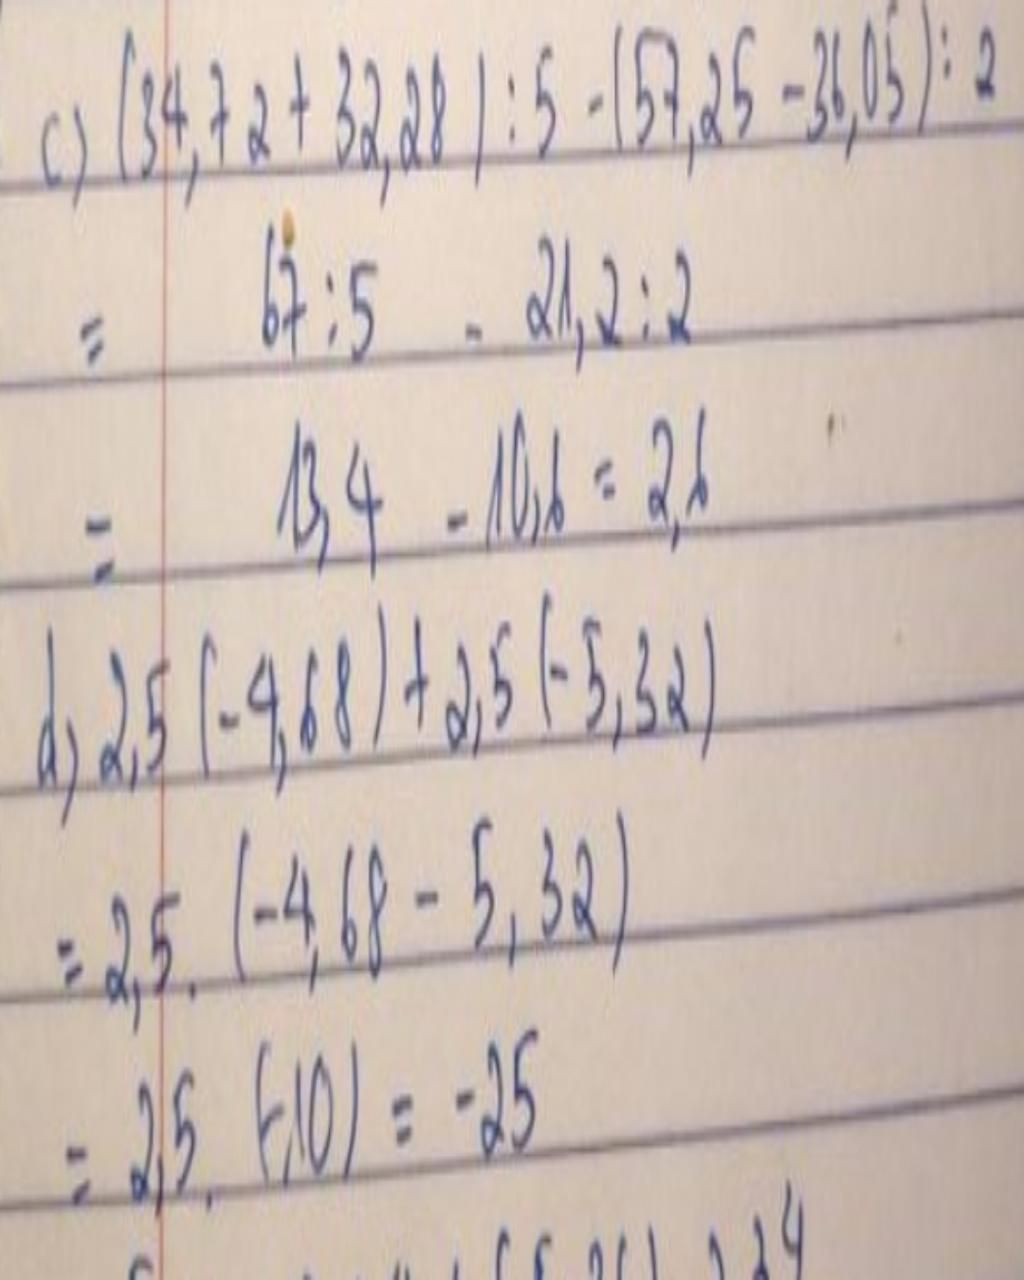 c) (34,72 + 32,28) : 5 - (57,25 - 36,05) : 2
= 67 : 5 - 21,2 : 2
= 13,4 - 10,6 = 2,6
d) 2,5 (-4,68) + 2,5 (-5,32)
= 2,5 . (-4,68 - 5,32)
= 2,5 . (-10) = -25